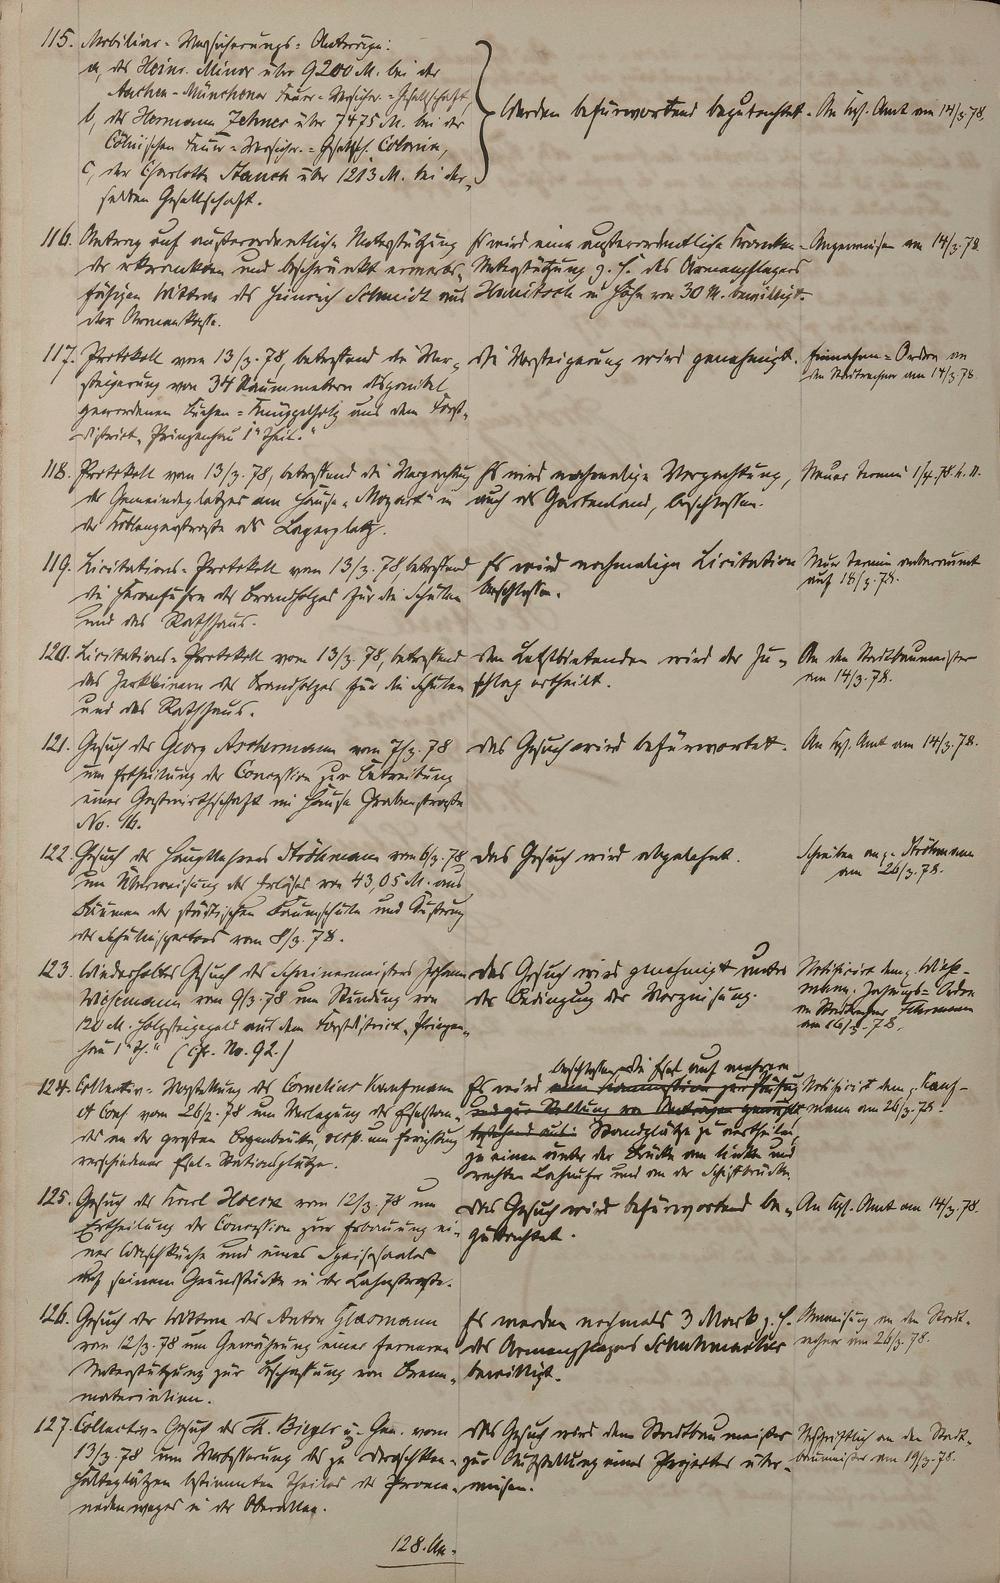 115. Mobiliar-Versicherungs-Anträge:
a, des Heinr. Minor über 9200 M. bei der
Aachen-Münchener Feuer-Versicher.-Gesellschaft,
b, des Hermann Zehner über 7475 M. bei der
Cölnischen Feuer-Versicher.-Gesellsch. Colonia,
c, der Charlotte Stauch über 1213 M. bei der-
selben Gesellschaft.
Werden befürwortend begutachtet. An Kgl. Amt am 14/3.78.
116. Antrag auf außerordentliche Unterstützung
der erkrankten und beschränkt erwerbs-
fähigen Wittwe des Heinrich Schmidt aus
der Armenkasse.
Es wird eine außerordentliche Kranken-
Unterstützung z. H. des Armenpflegers
in Höhe von 30 M. bewilligt.
Angewiesen am 14/3.78
117. Protokoll vom 13/3.78, betreffend die Ver-
steigerung von 34 Raummetern disponibel
gewordenen Buchen-Knüppelholz aus dem Forst-
district „Prinzenhau 1r Theil."
Die Versteigerung wird genehmigt.
Einnahme-Ordre an
den Stadtrechner am 14/3.78.
118. Protokoll vom 13/3.78, betreffend die Verpachtung
des Gemeindeplatzes am Hause „Mozart" in
der Coblenzerstraße als Lagerplatz.
Es wird nochmalige Verpachtung,
auch als Gartenland, beschlossen.
Neuer Termin 1/4.78
119. Licitations-Protokoll vom 13/3.78, betreffend
die Heranfuhr des Brandholzes für die Schulen
und das Rathhaus.
Es wird nochmalige Licitation
beschlossen.
Neuer Termin anberaumt
auf 18/3.78.
120. Licitations-Protokoll vom 13/3.78, betreffend
das Zerkleinern des Brandholzes für die Schulen
und das Rathhaus.
Dem Letztbietenden wird der Zu-
schlag ertheilt.
An den Stadtbaumeister
am 14/3.78.
121. Gesuch des Georg Aschermann vom 7/3.78
um Ertheilung der Concession zur Betreibung
einer Gastwirthschaft im Hause Grabenstraße
No. 16.
Das Gesuch wird befürwortet.
An Kgl. Amt am 14/3.78.
122. Gesuch des Hauptlehrers Ströhmann vom 6/3.78
um Überweisung des Erlöses von 43,05 M. aus
Bäumen der städtischen Baumschule und Äußerung
des Schulinspectors vom 8/3.78.
Das Gesuch wird abgelehnt.
Schreiben an p. Ströhmann
am 26/3.78.
123. Wiederholtes Gesuch des Schreinermeisters Johann
Wissmann vom 9/3.78 um Stundung von
120 M. Holzsteigegeld aus dem Forstdistrict „Prinzen-
hau 1r Th." (cfr. No. 92.)
Das Gesuch wird genehmigt unter
der Bedingung der Verzinsung.
Notificirt dem p. Wiss-
mann.
am 26/3.78.
124. Collectiv-Vorstellung des Cornelius Kaufmann
et Cons. vom 28/2.78 um Verlegung des Eselstan-
des an der großen Bogenbrücke, resp. um Errichtung
verschiedener Esel-Stationsplätze.
beschlossen, die Esel auf mehrere
Es wird
Standplätze zu vertheilen,
zu einem unter der Brücke am linken und
rechten Lahnufer und an der Schiffbrücke.
Notificirt dem p. Kauf-
mann am 26/3.78.
125. Gesuch des Karl Hoerr vom 12/3.78 um
Ertheilung der Concession zur Erbauung ei-
ner Waschküche und eines Speisesaales
auf seinem Grundstücke in der Lahnstraße.
Das Gesuch wird befürwortend be-
gutachtet.
An Kgl. Amt am 14/3.78.
126. Gesuch der Wittwe des Anton Glasmann
vom 12/3.78 um Gewährung einer ferneren
Unterstützung zur Beschaffung von Brenn-
materialien.
Es werden nochmals 3 Mark z. H.
des Armenpflegers Schuhmacher
bewilligt.
Anweisung an den Stadt-
rechner am 26/3.78.
127. Collectiv-Gesuch des Th. Bingel u. Gen. vom
13/3.78 um Verbesserung des zu Droschken-
halteplätzen bestimmten Theiles des Prome-
nadenweges in der Oberallee.
Das Gesuch wird dem Stadtbaumeister
zur Aufstellung eines Projectes über-
wiesen.
Abschriftlich an den Stadt-
baumeister am 19/3.78.
128. An-